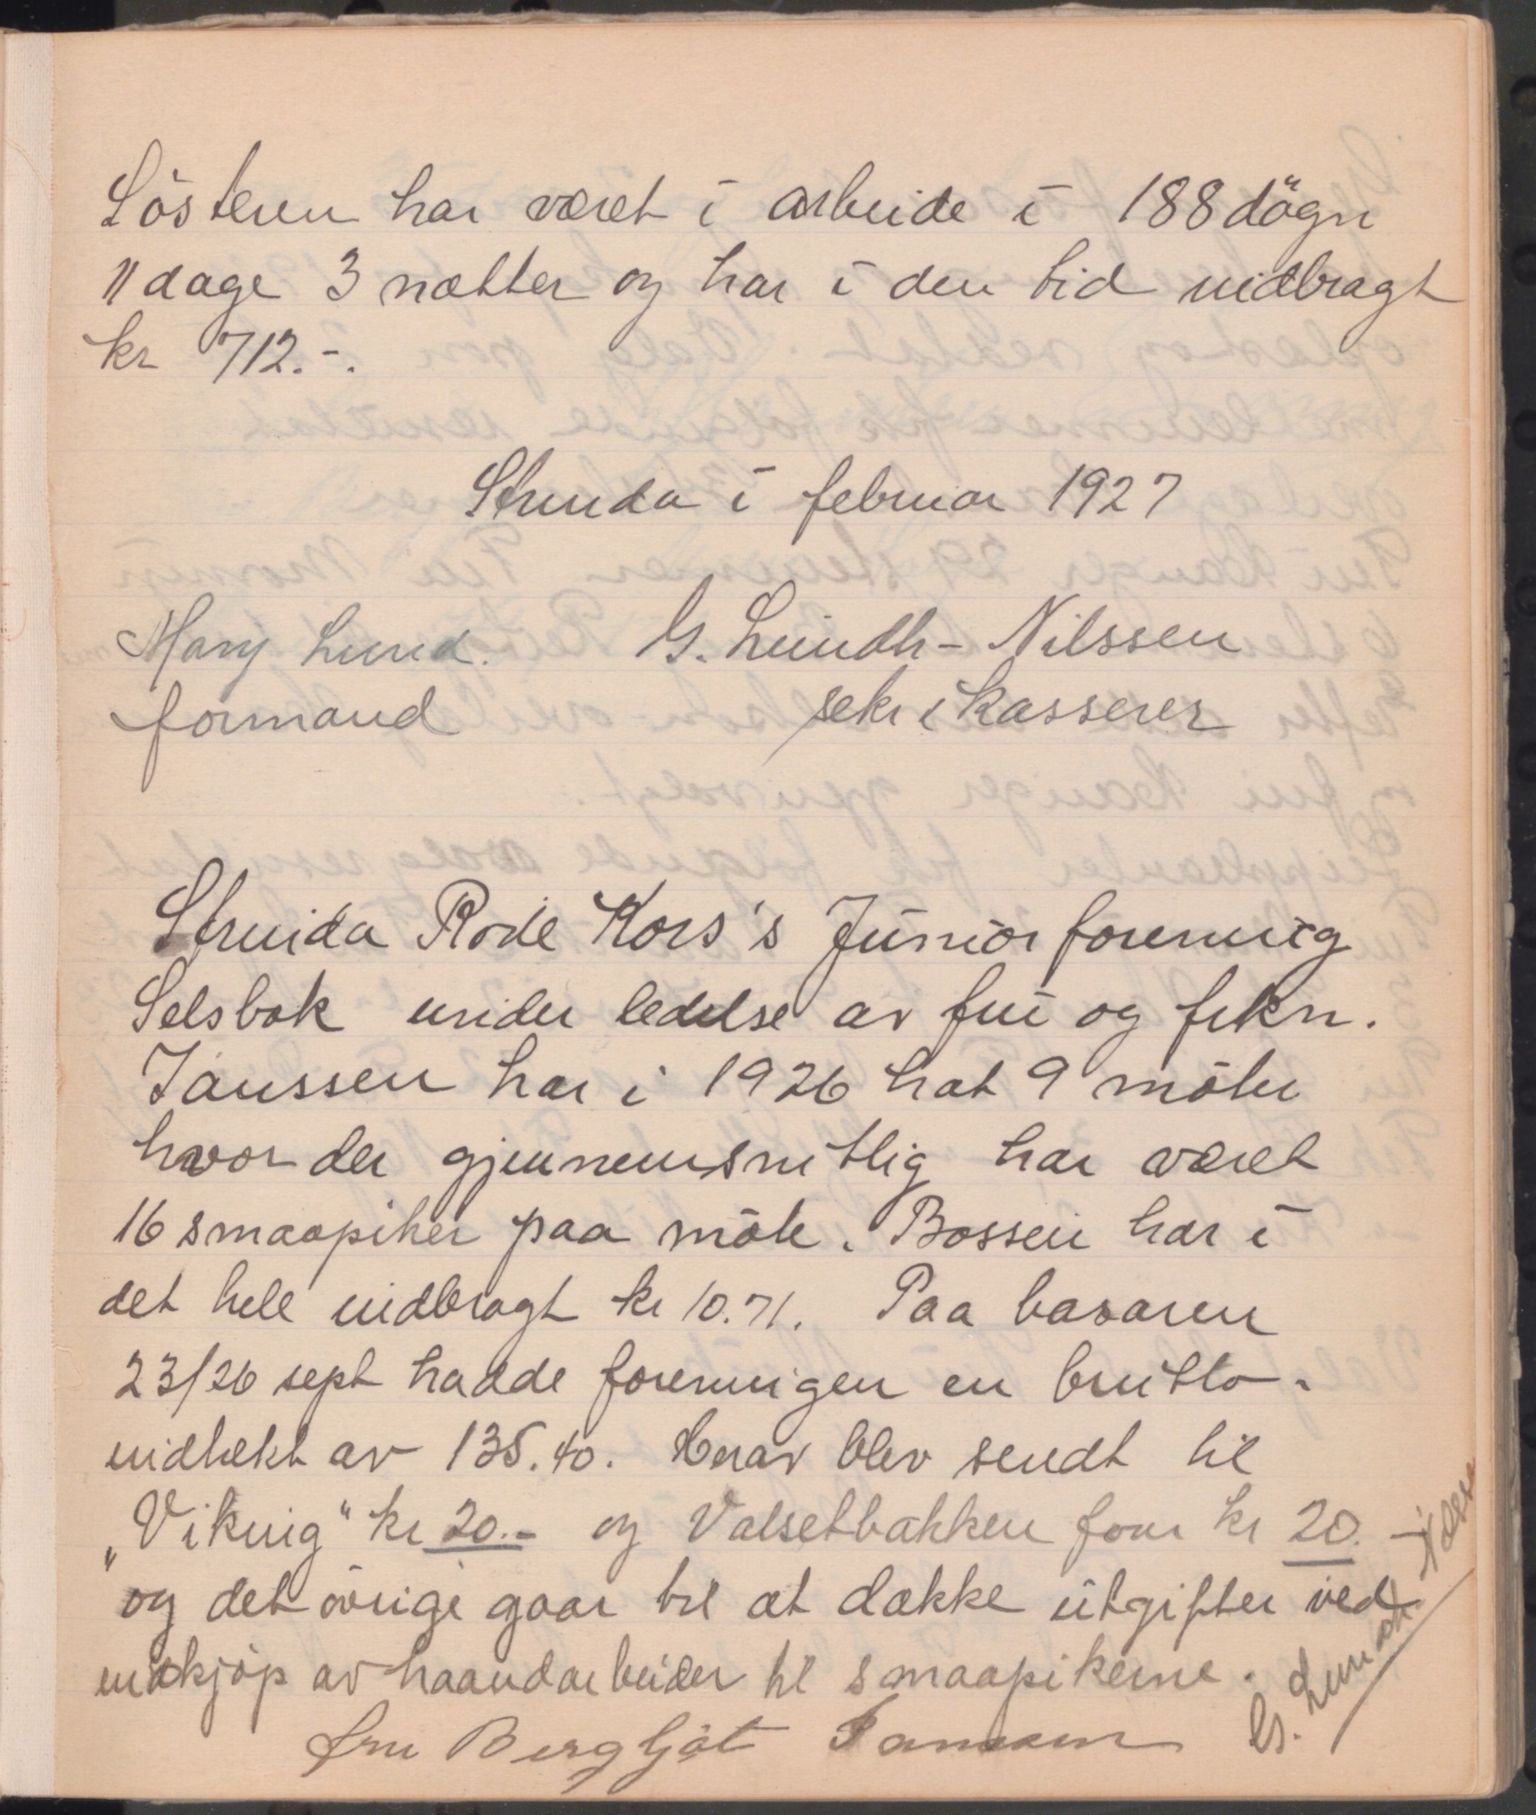 Sösteren har været i arbeide i 188 dögn
11 dage 3 nætter og har i den tid indbragt
kr 712.-.
Strinda i februar 1927
Mary Lund. G. Lundh-Nilssen
formand sekr i kasserer
Strinda Röde Kors's Juniorforening
Selsbak under ledelse av fru og frkn.
Janssen har i 1926 hat 9 möter
hvor der gjennemsnitlig har været
16 smaapiker paa möte. Bössen har i
det hele indbragt kr 10.71. Paa basaren
23/26 sept hadde foreningen en brutto-
indtekt av 135.40. Herav blev sendt til
„Viking" kr 20.- og Valsetbakken fam kr 20.-
og det övrige gaar til at dække utgifter ved
indkjöp av haandarbeider til smaapikerne.
fru Bergljót Janssen
G. Lundh-Nilssen